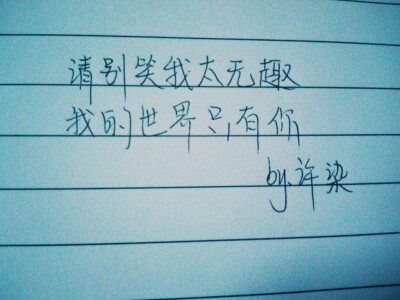 请别笑我太无趣
我的世界只有你
by.许染